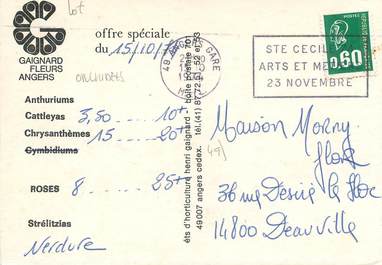 Lot
GAIGNARD
FLEURS
ANGERS
offre spéciale
du 15/10/7
ORCHIDÉES
Anthuriums
Cattleyas 3,50 10+
Chrysanthèmes 15 20+
Cymbidiums
ROSES 8 25+
Strélitzias
Verdure
éts d'horticulture henri gaignard - boite postale 701
49007 angers cedex. tél.(41) 87.72.91, 52 et 53
49 GARE
STE CECILE
ARTS ET ME
23 NOVEMBRE
POSTES
0,60
Maison Morny
flor
36 rue Désiré le Hoc
14800 Deauville